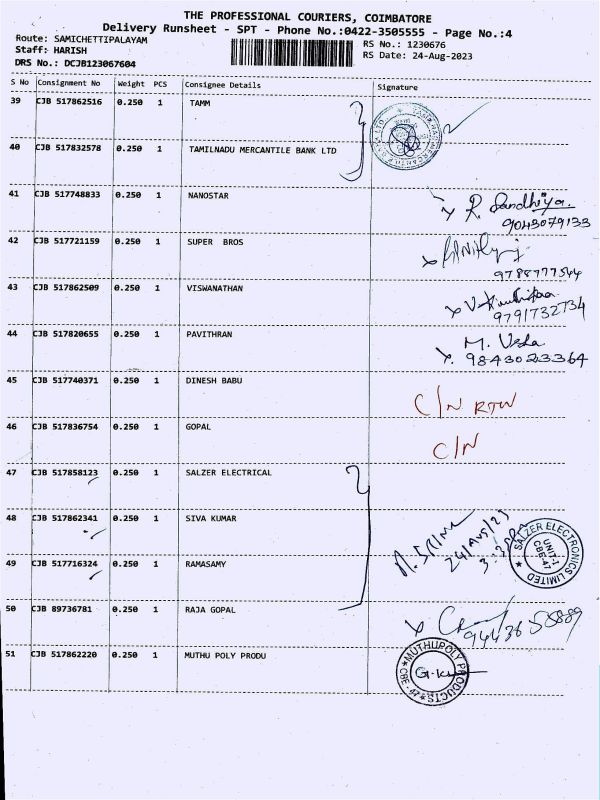 THE PROFESSIONAL COURIERS, COIMBATORE
Delivery Runsheet - SPT - Phone No.:0422-3505555 - Page No.:4
Route: SAMICHETTIPALAYAM
Staff: HARISH
DRS No.: DCJB123067604
RS No.: 1230676
RS Date: 24-Aug-2023
S No Consignment No Weight PCS Consignee Details Signature
39 CJB 517862516 0.250 1 TAMM
40 CJB 517832578 0.250 1 TAMILNADU MERCANTILE BANK LTD
41 CJB 517748833 0.250 1 NANOSTAR
R. Sandhiya.
9043079133
42 CJB 517721159 0.250 1 SUPER BROS
9788777544
43 CJB 517862509 0.250 1 VISWANATHAN
9791732734
44 CJB 517820655 0.250 1 PAVITHRAN
M. Usha
9843023364
45 CJB 517740371 0.250 1 DINESH BABU
C/N RTW
46 CJB 517836754 0.250 1 GOPAL
C/N
47 CJB 517858123 0.250 1 SALZER ELECTRICAL
48 CJB 517862341 0.250 1 SIVA KUMAR
24/Aug/23
SALZER ELECTRONICS LIMITED
UNIT-1
CBE-47
49 CJB 517716324 0.250 1 RAMASAMY
50 CJB 89736781 0.250 1 RAJA GOPAL
51 CJB 517862220 0.250 1 MUTHU POLY PRODU
MUTHUPOLY PRODUCTS
CBE-47